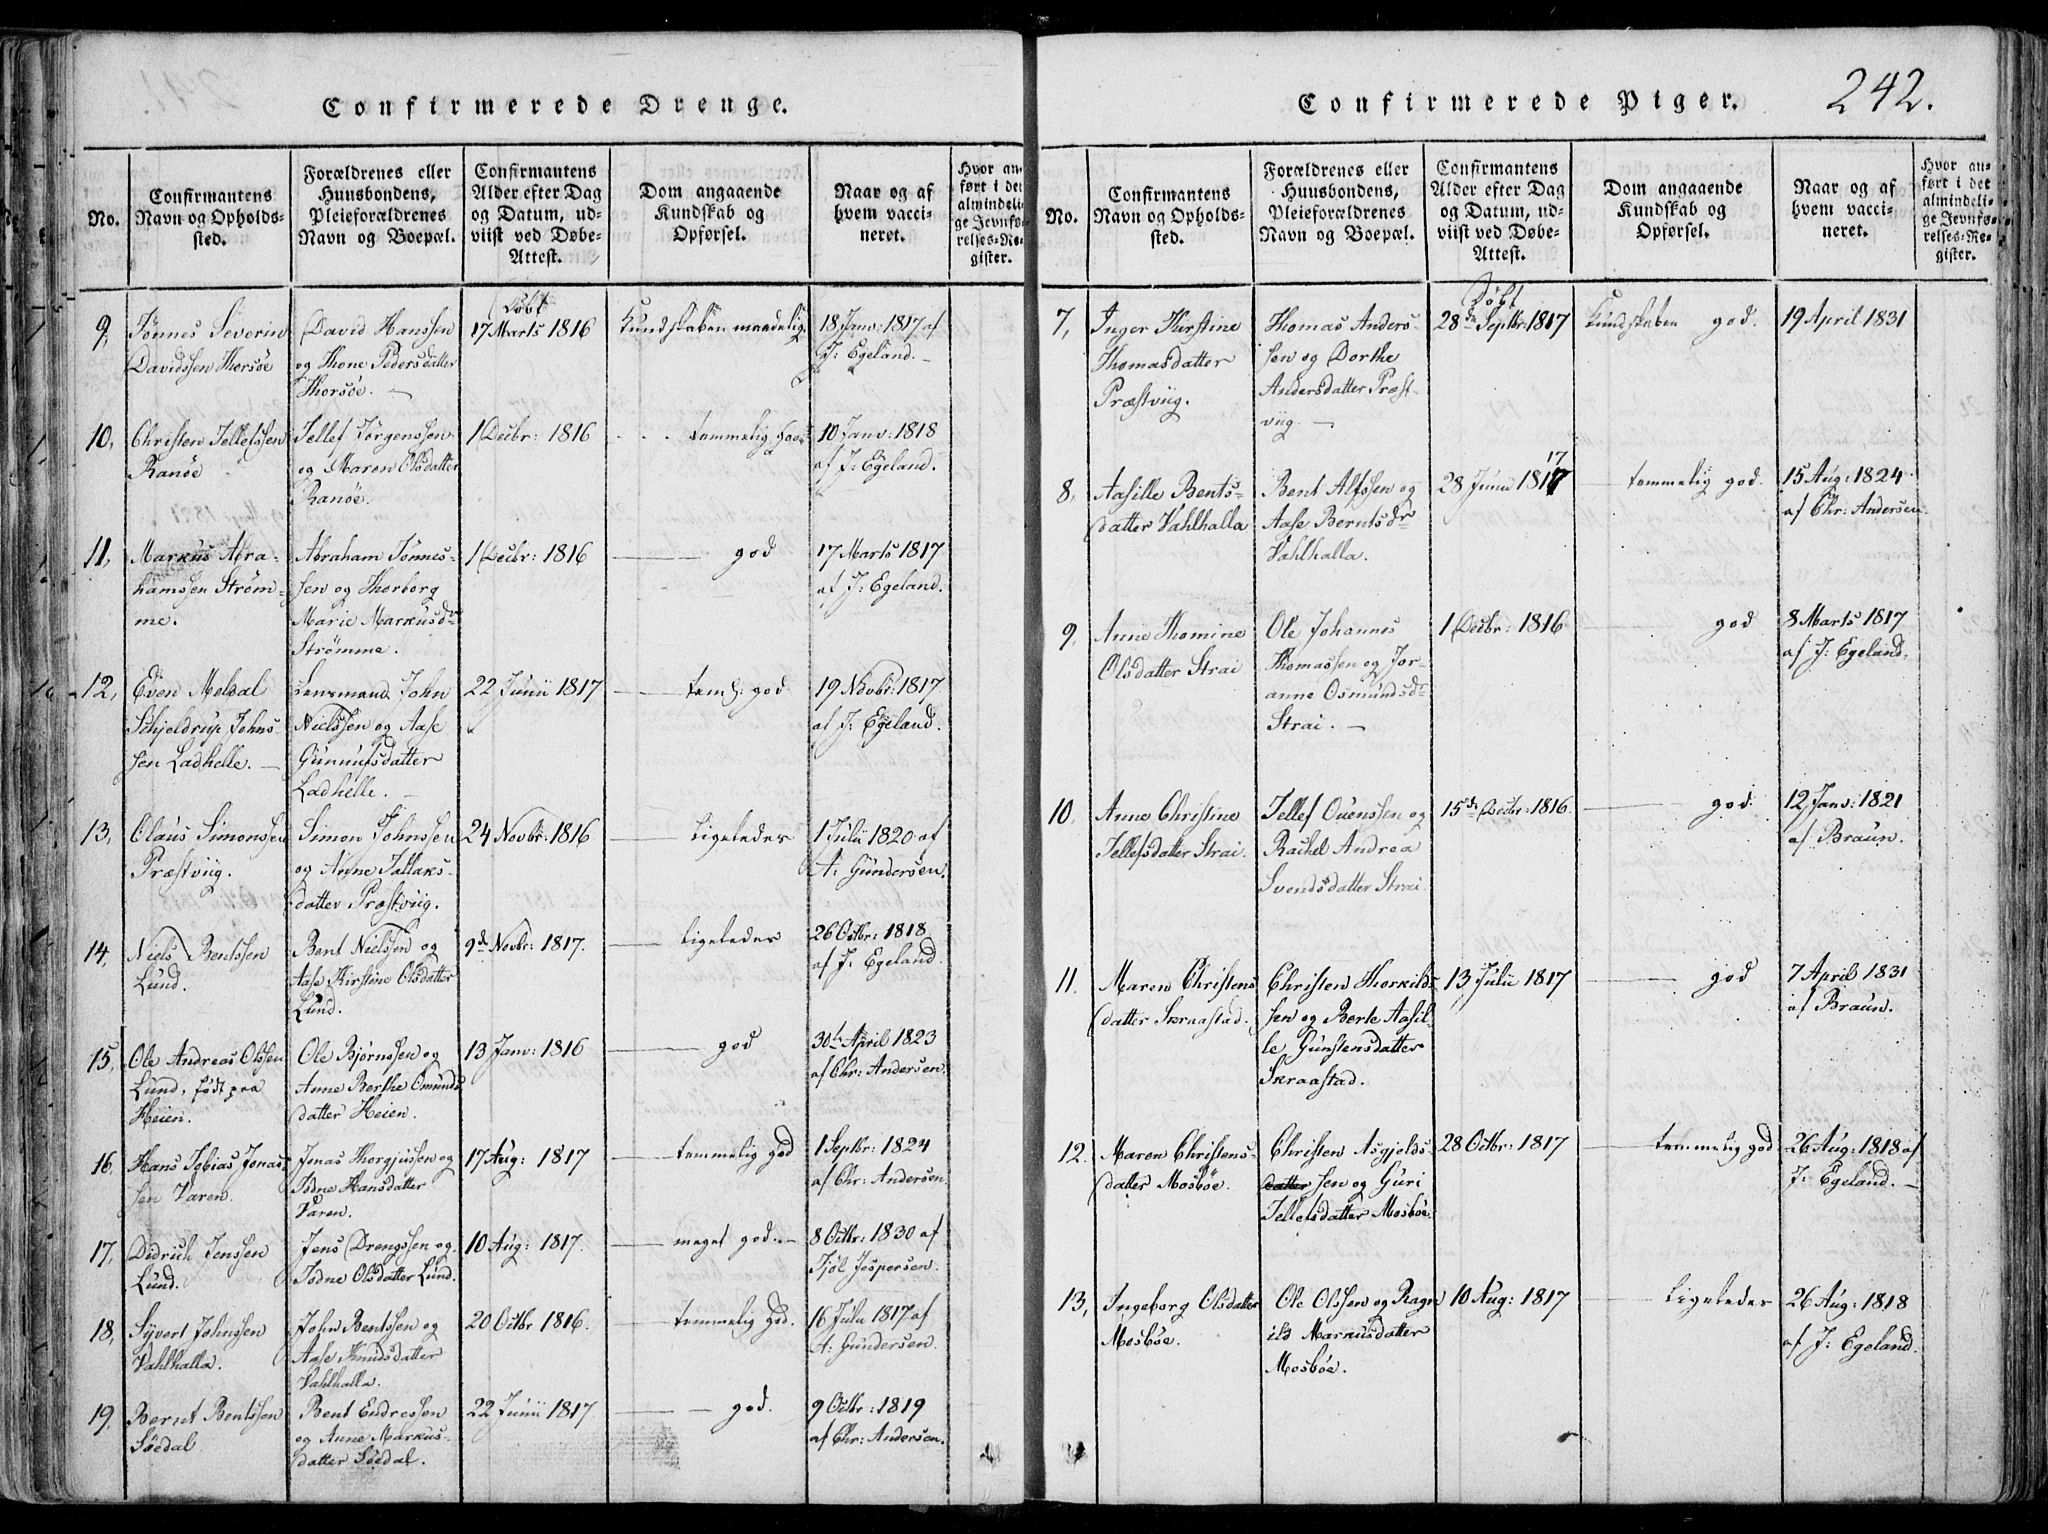 Confirmerede Drenge.
No.
Confirmantens
Navn og Opholds-
sted.
Forældrenes eller
Huusbondens,
Pleieforældrenes
Navn og Boepæl.
Confirmantens
Alder efter Dag
og Datum, ud-
viist ved Døbe-
Attest.
Dom angaaende
Kundskab og
Opførsel.
Naar og af
hvem vacci-
neret.
Hvor an-
ført i det
almindeli-
ge Jevnfø-
relses-Re-
gister.
9,
Tønnes Severin
Davidssen Thorsøe
David Hanssen
og Thone Pedersdatter
Thorsøe. —
Døbt
17 Marts 1816
Kundskaben maadelig
18 Janv: 1817 af
J: Egeland. —
10,
Christen Tellefssen
Ranøe
Tellef Jörgenssen
og Maren Olsdatter
Ranöe.
1 Decbr: 1816
temmelig god
10 Janv: 1818
af J: Egeland.
11,
Markus Abra-
hamssen Strøm-
me.
Abraham Tönnes-
sen og Thorborg
Marie Markusdr
Strömme.
1 Decbr: 1816
god
17 Marts 1817
af J: Egeland.
12,
Even Meldal
Schjeldrup Johns-
sen Ladhelle. —
Lensmand John
Nielssen og Aase
Gunnufsdatter
Ladhelle. —
22 Junii 1817
teml: god
19 Novbr: 1817
af J: Egeland.
13,
Olaus Simonssen
Præstviig.
Simon Johnssen
og Anne Tallaks-
datter Præstviig.
24 Novbr: 1816
ligeledes
1 Julii 1820 af
A: Gundersen.
14,
Niels Bentssen
Lund.
Bent Nielssen og
Aase Kirstine Olsdatter
Lund.
9d Novbr: 1817.
ligeledes
26 Octbr: 1818
af J: Egeland
15,
Ole Andreas Olssen
Lund, født paa
Heien.
Ole Bjørnssen og
Anne Berthe Omunds
datter Heien.
13 Janv: 1816
god
30te April 1823
af Chr: Andersen.
16
Hans Tobias Jonas-
sen Varen.
Jonas Thorgjussen og
Todne Hansdatter
Varen.
17 Aug: 1817
temmelig god
1 Septbr: 1824
af Chr: Andersen.
17,
Didrich Jenssen
Lund.
Jens Drengssen og
Todne Olsdatter Lund.
10 Aug: 1817.
meget god. —
8 Octbr: 1830 af
Tjöl Jespersen.
18,
Syvert Johnssen
Vahlhalla.
John Bentssen og
Aase Knudsdatter
Vahlhalla.
20 Octbr 1816.
temmelig god.
16 Julii 1817 af
A: Gundersen.
19,
Bernt Bentssen
Söedal
Bent Endressen
og Anne Markus-
datter Söedal.
22 Junii 1817.
god.
9 Octbr: 1819
af Chr: Andersen.
Confirmerede Piger.
242.
No.
Confirmantens
Navn og Opholds-
sted.
Forældrenes eller
Huusbondens,
Pleieforældrenes
Navn og Boepæl.
Confirmantens
Alder efter Dag
og Datum, ud-
viist ved Døbe-
Attest.
Dom angaaende
Kundskab og
Opførsel.
Naar og af
hvem vacci-
neret.
Hvor an-
ført i det
almindeli-
ge Jevnfø-
relses-Re-
gister.
7,
Inger Kirstine
Thomasdatter
Præstviig.
Thomas Anders-
sen og Dorthe
Andersdatter Præst-
viig. —
Döbt
28de Septbr: 1817
Kundskaben god.
19 April 1831
8,
Aasille Bents-
datter Vahlhalla
Bent Alfssen og
Aase Berntsdr
Vahlhalla.
17
28 Junii 1817
temmelig god.
15 Aug: 1824
af Chr: Andersen
9,
Anne Thomine
Olsdatter Strai
Ole Johannes
Thomassen og Jor-
anne Osmundsdr
Strai. —
1 Decbr: 1816
god
8 Marts 1817
af J: Egeland.
10,
Anne Christine
Tellefsdatter Strai.
Tellef Ouenssen og
Rachel Andrea
Svendsdatter Strai
15de Decbr: 1816.
god.
12 Janv: 1821
af Braun.
11.
Maren Christens
datter Skraastad.
Christen Thorkilds-
sen og Berte Aasil-
le Gunstensdatter
Skraastad.
13 Julii 1817
god
7 April 1831
af Braun.
12.
Maren Christens-
datter Mosbøe.
Christen Asgjelds-
datter sen og Guri
Tellefsdatter Mosböe.
28 Octbr: 1817
temmelig god
26 Aug: 1818 af
J: Egeland. —
13,
Ingeborg Olsdatter
Mosböe.
Ole Olssen og Ragn
ild Markusdatter
Mosböe.
10 Aug: 1817
ligeledes
26 Aug: 1818
af J: Egeland.